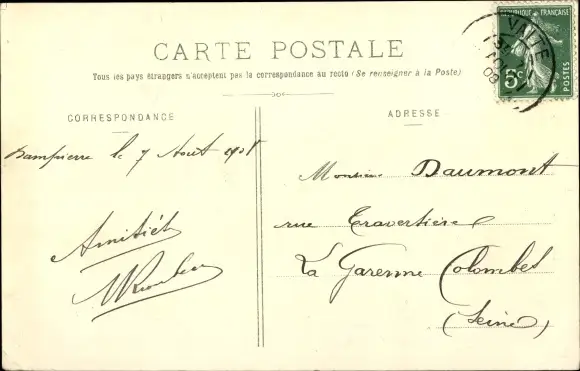 CARTE POSTALE
Tous les pays étrangers n'acceptent pas la correspondance au recto (Se renseigner à la Poste)
CORRESPONDANCE
ADRESSE
RÉPUBLIQUE FRANÇAISE
5c
POSTES
Dampierre le 7 Août 1908
Amitiés
Monsieur Daumont
rue Traversière
La Garenne Colombes
(Seine)